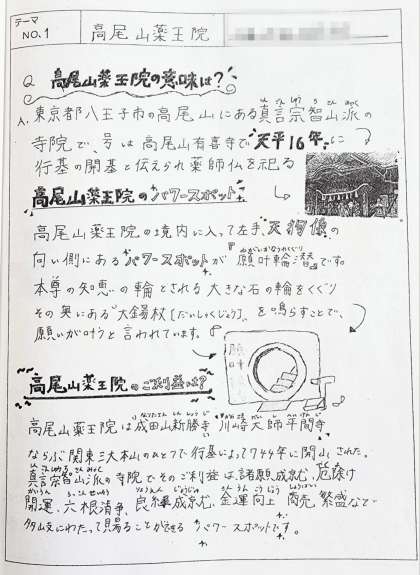 テーマ
NO.1
高尾山薬王院
Q 高尾山薬王院の意味は?
A. 東京都八王子市の高尾山にある真言宗智山派の
寺院で、号は高尾山有喜寺で天平16年に
行基の開基と伝えられ薬師仏を祀る
高尾山薬王院のパワースポット
高尾山薬王院の境内に入って左手、天狗像の
向い側にあるパワースポットが『願叶輪潜』です。
本尊の知恵の輪とされる大きな石の輪をくぐり
その奥にある「大錫杖(だいしゃくじょう)」を鳴らすことで、
願いが叶うと言われています。
願叶
高尾山薬王院のご利益は?
高尾山薬王院は成田山新勝寺 川崎大師平間寺
ならぶ関東三大本山のひとつで行基によって744年に開山された。
真言宗智山派の寺院でそのご利益は、諸願成就、厄除け
開運、六根清浄、良縁成就、金運向上 商売繁盛などで
多岐にわたって見ることができる パワースポットです。